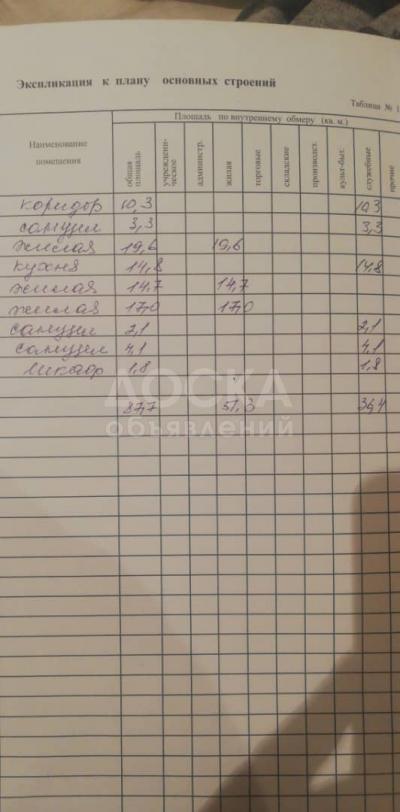 Экспликация к плану основных строений
Таблица № 1
Наименование помещения
Площадь по внутреннему обмеру (кв. м.)
общая площадь
учрежденческое
администр.
жилая
торговые
складские
производст.
культ-быт.
служебные
прочие
коридор 10,3 10,3
санузел 3,3 3,3
жилая 19,6 19,6
кухня 14,8 14,8
жилая 14,7 14,7
жилая 17,0 17,0
санузел 2,1 2,1
санузел 4,1 4,1
шкаф 1,8 1,8
87,7 51,3 36,4
ДОСКА
объявлений